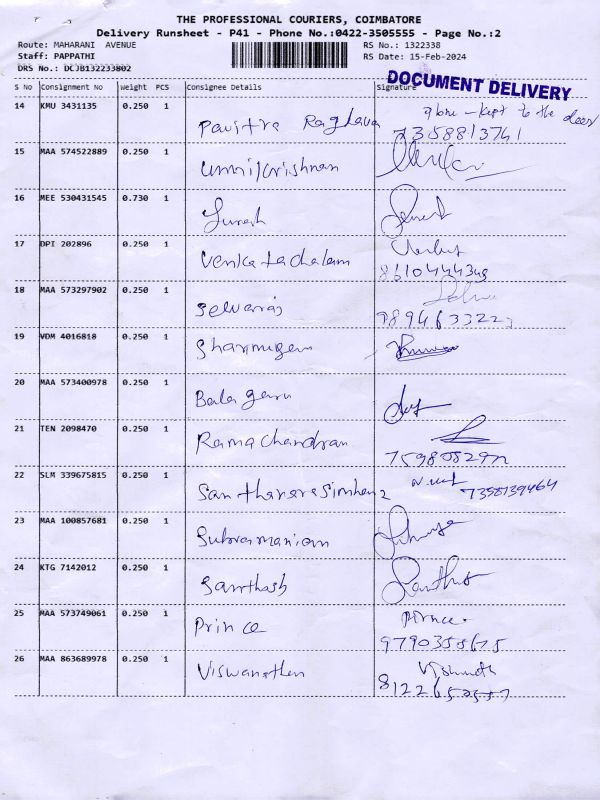 THE PROFESSIONAL COURIERS, COIMBATORE
Delivery Runsheet - P41 - Phone No.:0422-3505555 - Page No.:2
Route: MAHARANI AVENUE RS No.: 1322338
Staff: PAPPATHI RS Date: 15-Feb-2024
DRS No.: DCJB132233802
DOCUMENT DELIVERY
S No Consignment No Weight PCS Consignee Details Signature
14 KMU 3431135 0.250 1 Pavitra Raghava kept to the door
7358813761
15 MAA 574522889 0.250 1 Unnikrishnan
16 MEE 530431545 0.730 1 Suresh
17 DPI 202896 0.250 1 Venkatachalam
8610444345
18 MAA 573297902 0.250 1 Selvaraj
19 VDM 4016818 0.250 1 Shanmugam
20 MAA 573400978 0.250 1 Bala
21 TEN 2098470 0.250 1 Ramachandran
22 SLM 339675815 0.250 1
7358139464
23 MAA 100857681 0.250 1 Subramaniam
24 KTG 7142012 0.250 1 Santhosh Santhosh
25 MAA 573749061 0.250 1 Prince Prince
9790355675
26 MAA 863689978 0.250 1 Viswanathan